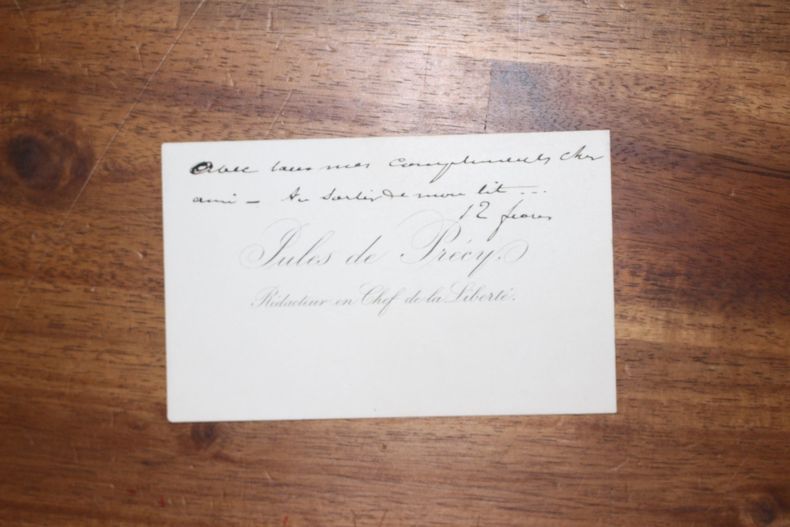 Avec tous mes compliments cher
ami — Au sortir de mon lit...
12
Jules de Précy.
Rédacteur en Chef de la Liberté.